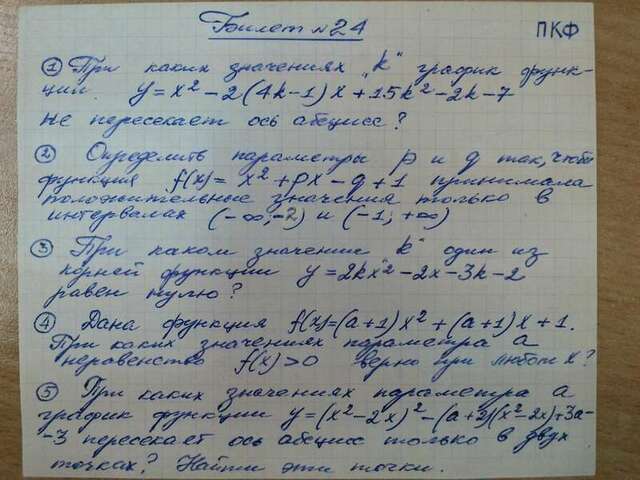 ПКФ
Билет № 24
① При каких значениях "k" график функ-
ции y = x² - 2(4k-1)x + 15k² - 2k - 7
не пересекает ось абсцисс?
② Определить параметры p и q так, чтоб
функция f(x) = x² + px - q + 1 принимала
положительные значения только в
интервалах (-∞; -2) и (-1; +∞)
③ При каком значение "k" один из
корней функции y = 2kx² - 2x - 3k - 2
равен нулю?
④ Дана функция f(x) = (a+1)x² + (a+1)x + 1.
При каких значениях параметра a
неравенство f(x) > 0 верно при любом x?
⑤ При каких значениях параметра a
график функции y = (x² - 2x)² - (a+3)(x² - 2x) + 3a -
-3 пересекает ось абсцисс только в двух
точках? Найти эти точки.